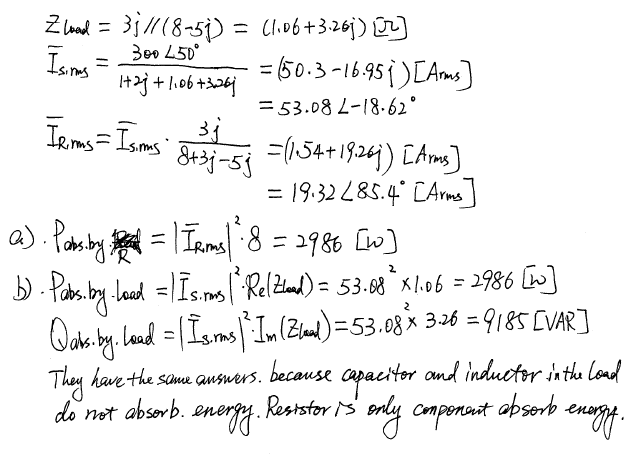 Z Load = 3j//(8-5j) = (1.06+3.26j) [Ω]
I̅s,rms = 300∠50° / 1+2j+1.06+3.26j = (50.3-16.95j) [Arms]
= 53.08∠-18.62°
I̅R,rms = I̅s,rms · 3j / 8+3j-5j = (1.54+19.26j) [Arms]
= 19.32∠85.4° [Arms]
a). Pabs.by.R = |I̅R,rms|²·8 = 2986 [W]
b). Pabs.by.Load = |I̅s,rms|²·Re(ZLoad) = 53.08²×1.06 = 2986 [W]
Qabs.by.Load = |I̅s,rms|²·Im(ZLoad) = 53.08²×3.26 = 9185 [VAR]
They have the same answers. because capacitor and inductor in the Load
do not absorb. energy. Resistor is only component absorb energy.